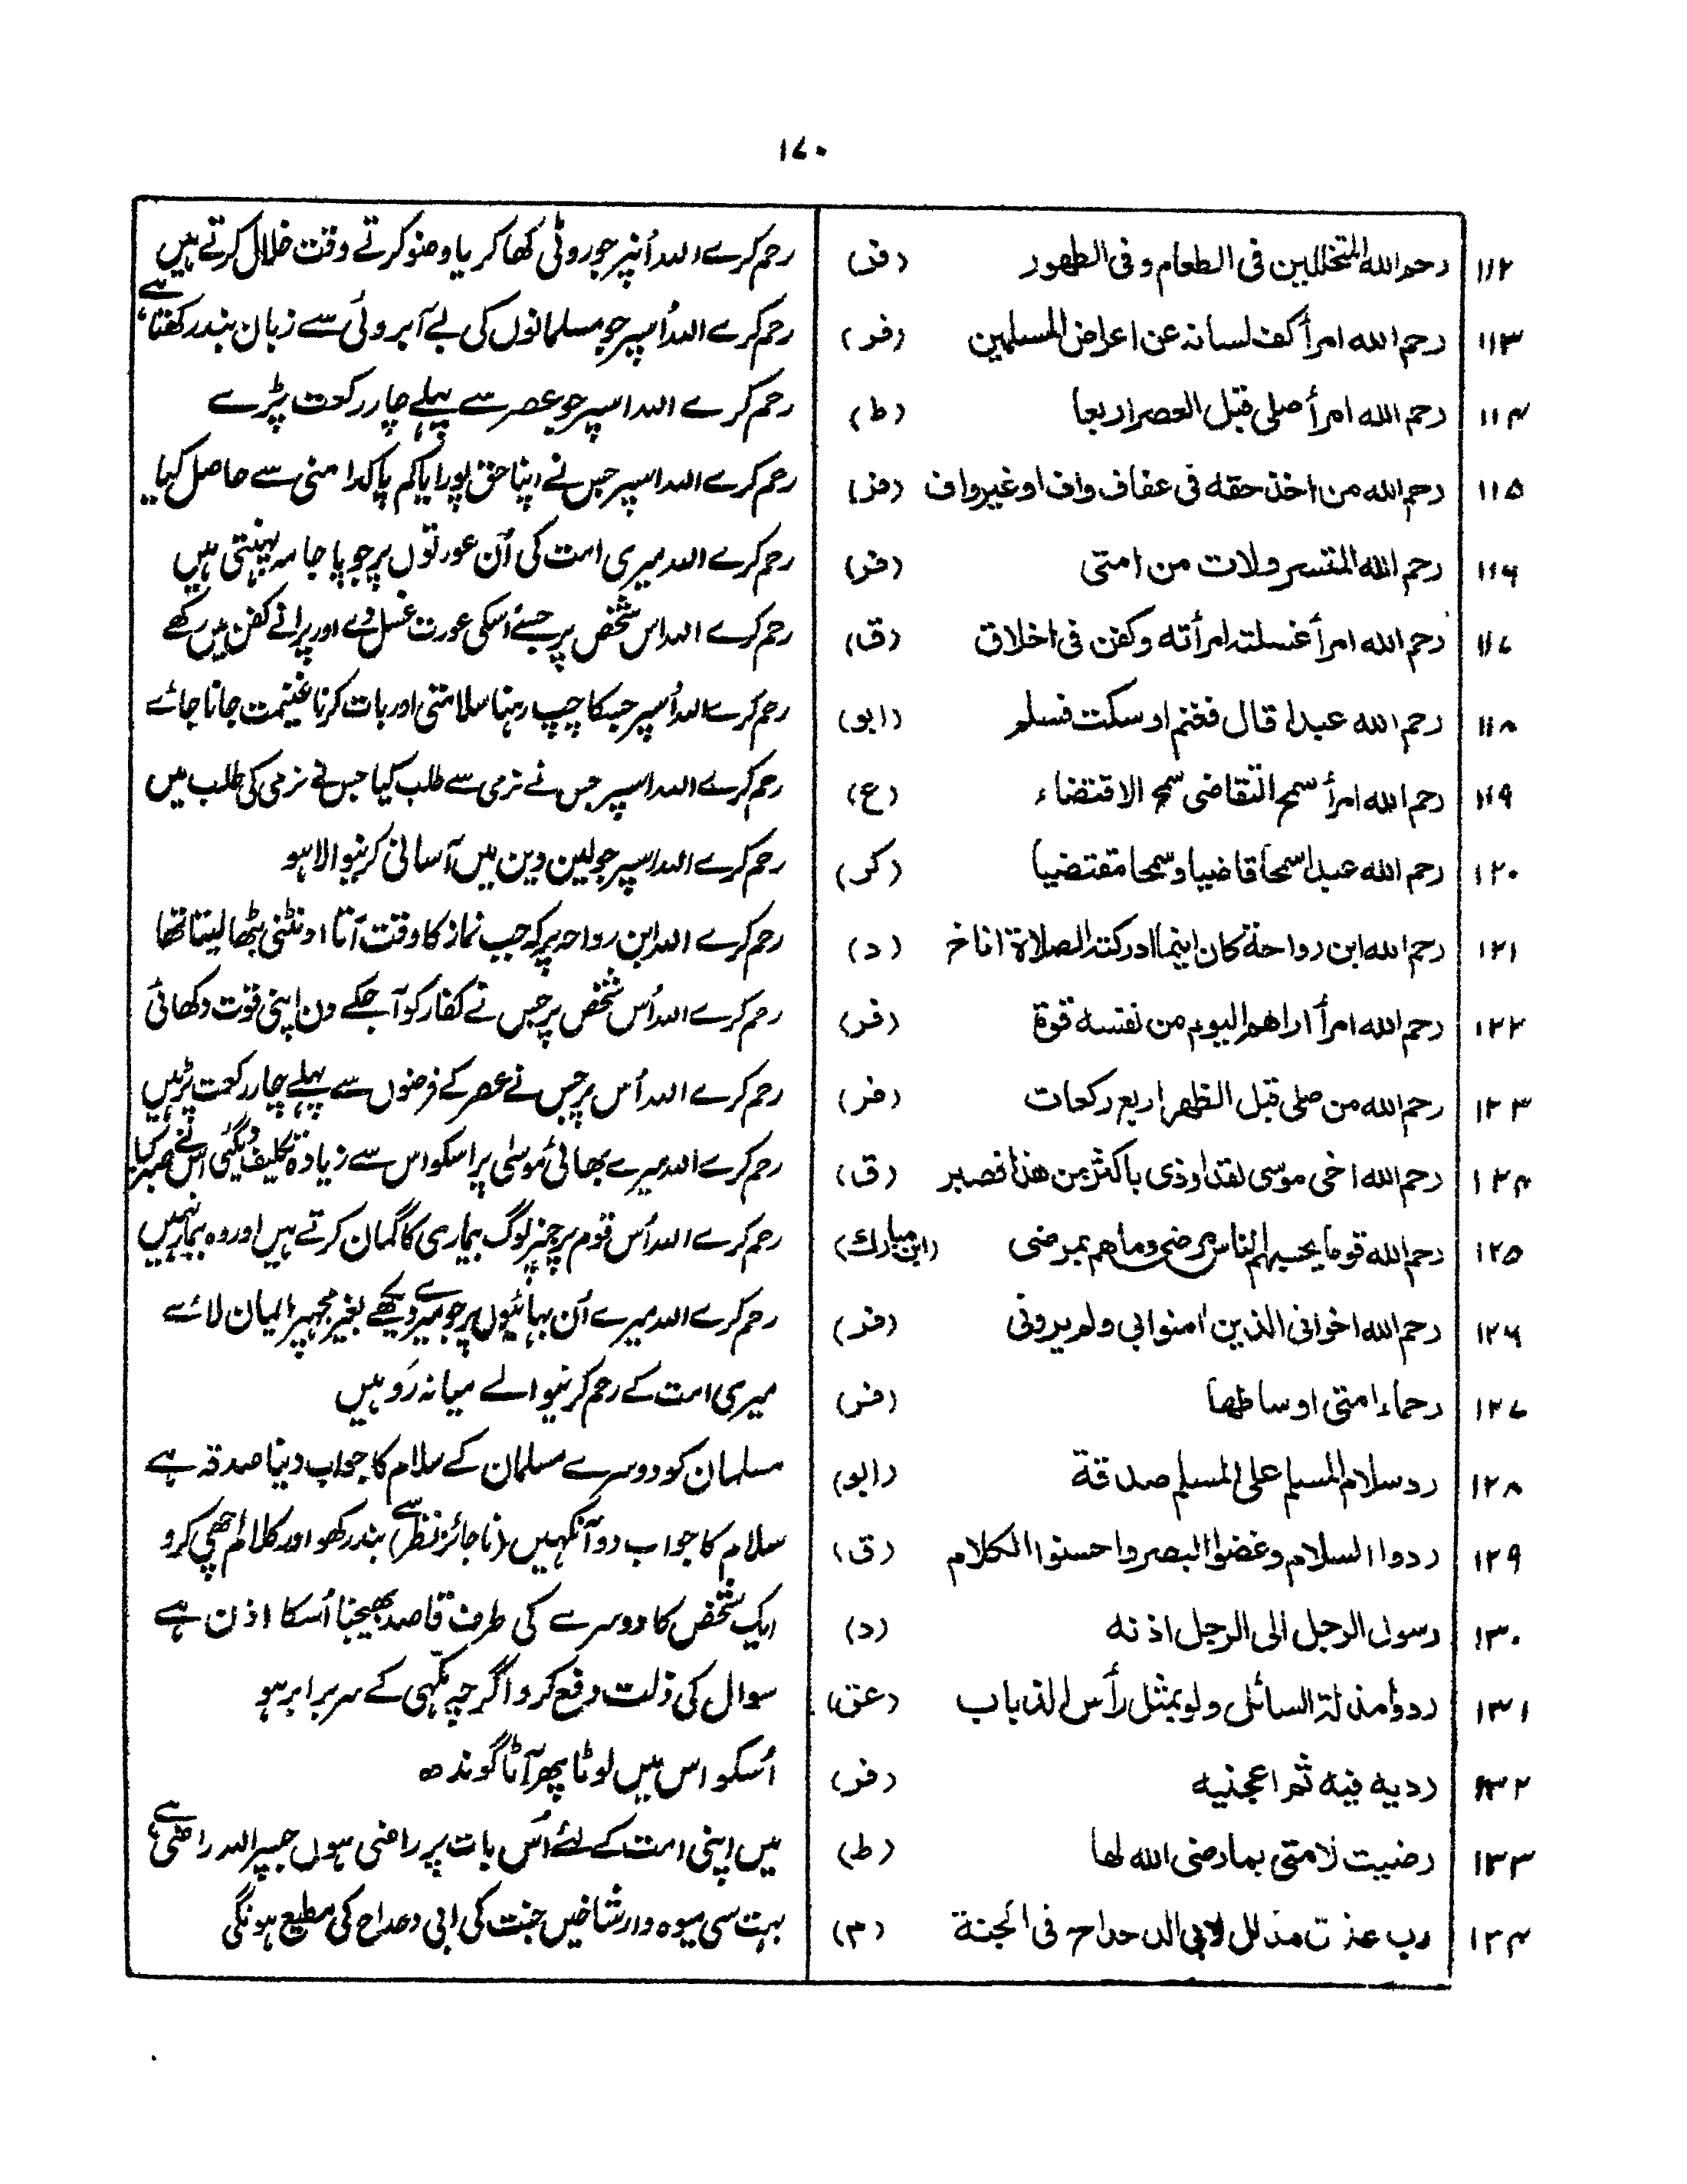 ۱۷۰
۱۱۲ رحم الله المتخللین فی الطعام و فی الطهور (فر) رحم کرے اللہ اُنپر جو روٹی کھا کر یا وضو کرتے وقت خلال کرتے ہیں
۱۱۳ رحم الله امرأ کف لسانه عن اعراض المسلمین (فر) رحم کرے اللہ اُسپر جو مسلمانوں کی بے آبروئی سے زبان بند رکھتا ہے
۱۱۴ رحم الله امرأ صلی قبل العصر اربعا (ط) رحم کرے اللہ اسپر جو عصر سے پہلے چار رکعت پڑے
۱۱۵ رحم الله من اخذ حقه فی عفاف واف او غیر واف (فر) رحم کرے اللہ اسپر جس نے اپنا حق پورا یا کم پاکدامنی سے حاصل کیا
۱۱۶ رحم الله المتسرولات من امتی (فر) رحم کرے اللہ میری امت کی اُن عورتوں پر جو پاجامہ پہنتی ہیں
۱۱۷ رحم الله امرأ غسلته امرأته وکفن فی اخلاق (ق) رحم کرے اللہ اس شخص پر جسے اُسکی عورت غسل دے اور پرانے کفن میں رکھے
۱۱۸ رحم الله عبدا قال فغنم او سکت فسلم (ابو) رحم کرے اللہ اُسپر جسکا چپ رہنا سلامتی اور بات کرنا غنیمت جانا جائے
۱۱۹ رحم الله امرأ سمح التقاضی سمح الاقتضاء (ع) رحم کرے اللہ اسپر جس نے نرمی سے طلب کیا جس نے نرمی کی طلب میں
۱۲۰ رحم الله عبدا سمحا قاضیا و سمحا مقتضیا (کر) رحم کرے اللہ اسپر جو لین دین میں آسانی کرنیوالا ہو
۱۲۱ رحم الله ابن رواحة کان اینما ادرکته الصلاة اناخ (د) رحم کرے اللہ ابن رواحہ پر کہ جب نماز کا وقت آتا اونٹنی بٹھا لیتا تھا
۱۲۲ رحم الله امرأ اراهم الیوم من نفسه قوة (فر) رحم کرے اللہ اُس شخص پر جس نے کفار کو آجکے دن اپنی قوت دکھائی
۱۲۳ رحم الله من صلی قبل الظهر اربع رکعات (فر) رحم کرے اللہ اُس پر جس نے عصر کے فرضوں سے پہلے چار رکعت پڑہیں
۱۲۴ رحم الله اخی موسی لقد اوذی باکثر من هذا فصبر (ق) رحم کرے اللہ میرے بھائی موسٰی پر اسکو اس سے زیادہ تکلیف دیگئی اس نے صبر کیا
۱۲۵ رحم الله قوما یحسبهم الناس مرضی وما هم بمرضی (ابن مبارك) رحم کرے اللہ اُس قوم پر جنپر لوگ بیماری کا گمان کرتے ہیں اور وہ بیمار نہیں
۱۲۶ رحم الله اخوانی الذین امنوا بی ولم یرونی (فر) رحم کرے اللہ میرے اُن بہائیوں پر جو میرے دیکھے بغیر مجھپر ایمان لائے
۱۲۷ رحماء امتی اوساطها (فر) میری امت کے رحم کرنیوالے میانہ رَو ہیں
۱۲۸ رد سلام المسلم علی المسلم صدقة (ابو) مسلمان کو دوسرے مسلمان کے سلام کا جواب دینا صدقہ ہے
۱۲۹ ردوا السلام وغضوا البصر واحسنوا الکلام (ق) سلام کا جواب دو آنکہیں (ناجائز نظر سے) بند رکھو اور کلام اچھی کرو
۱۳۰ رسول الرجل الی الرجل اذنه (د) ایک شخص کا دوسرے کی طرف قاصد بھیجنا اُسکا اذن ہے
۱۳۱ ردوا مذلة السائل ولو بمثل رأس الذباب (عق) سوال کی ذلت دفع کرو اگرچہ مکّہی کے سر برابر ہو
۱۳۲ ردیه فیه ثم اعجنیه (فر) اُسکو اس میں لوٹا پھر آٹا گوندھ
۱۳۳ رضیت لامتی بما رضی الله لها (ط) میں اپنی امت کے لئے اُس بات پر راضی ہوں جسپر اللہ راضی ہے
۱۳۴ رب عذق مذلل لابی الدحداح فی الجنة (م) بہت سی میوہ دار شاخیں جنت کی ابی دحداح کی مطیع ہونگی